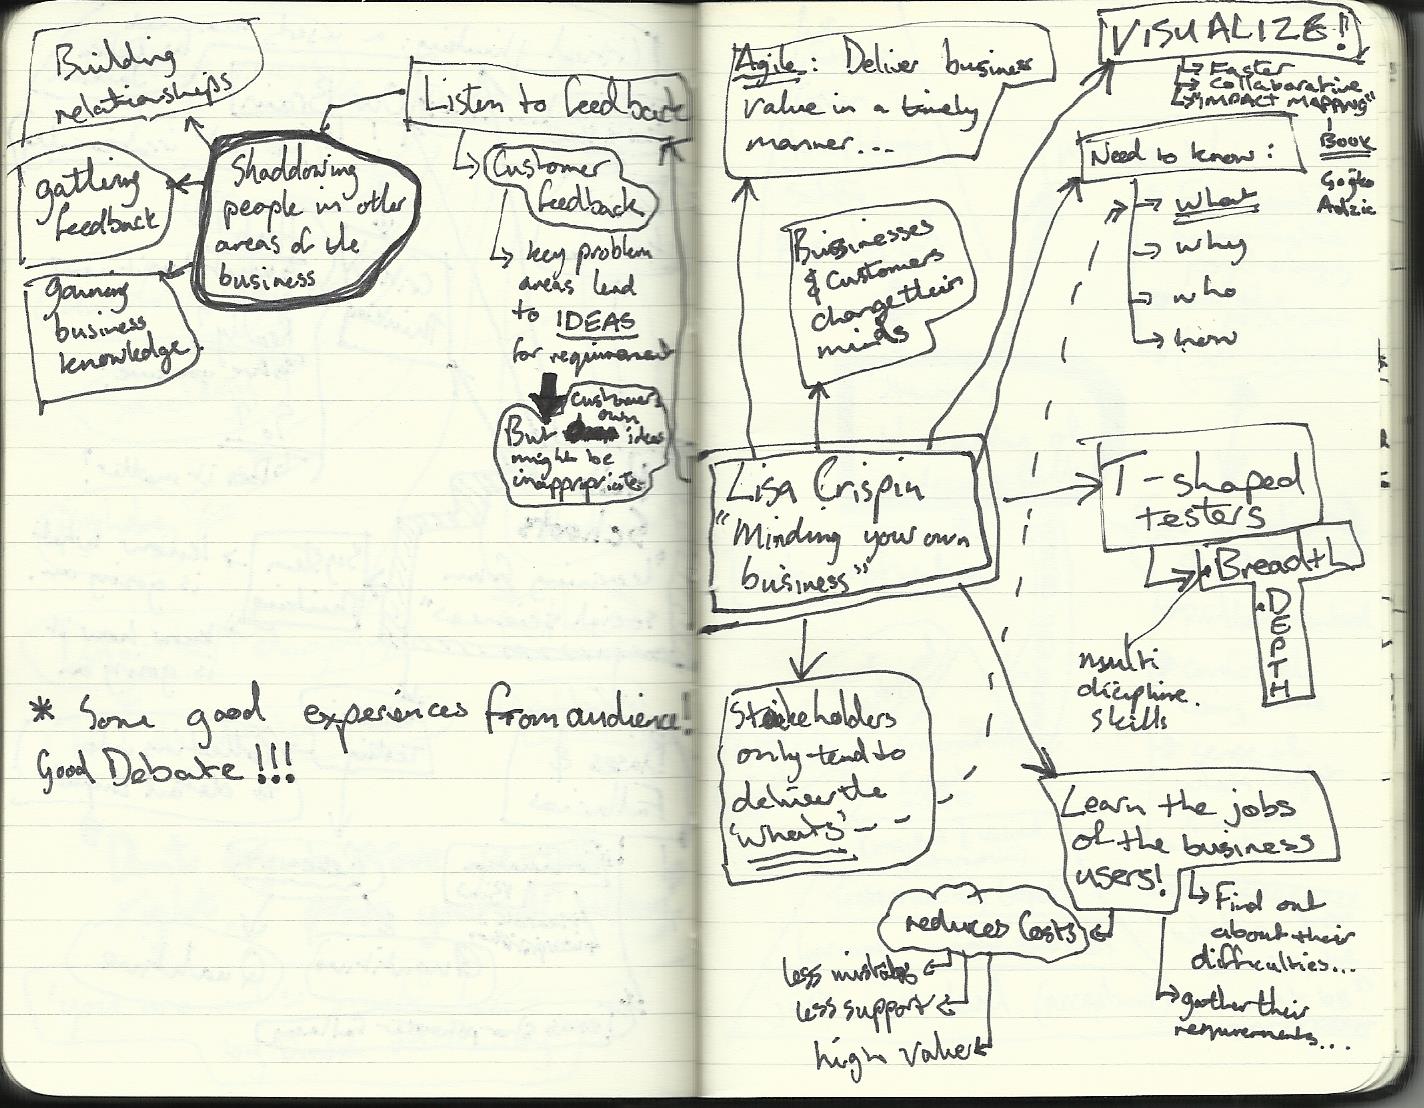 Building
relationships
gathring
feedback
gaining
business
knowledge
Shaddowing
people in other
areas of the
business
Listen to feedback
Customer
feedback
key problem
areas lead
to IDEAS
for requirement
customers
own
But ideas
might be
inappropriate
* Some good experiences from audience!
Good Debate!!!
Agile: Deliver business
value in a timely
manner...
VISUALIZE!
Faster
Collaborative
"IMPACT MAPPING"
Book
Gojko
Adzic
Need to know:
what
why
who
how
Bussinesses
& Customers
change their
minds
Lisa Crispin
"Minding your own
business"
T-shaped
testers
Breadth
DEPTH
multi
dicipline
skills
Stakeholders
only tend to
deliver the
'whats'
Learn the jobs
of the business
users!
Find out
about their
difficulties...
gather their
requirements...
reduces Costs
less mistakes
less support
high value